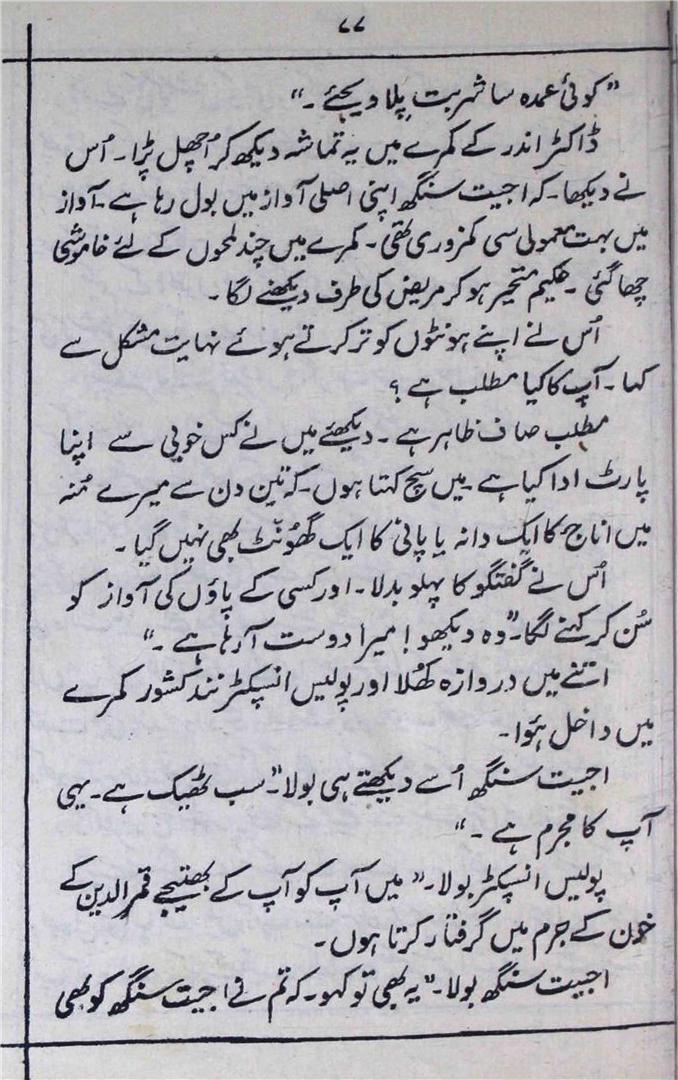 ۷۷
”کوئی عمدہ سا شربت پلا دیجئے۔“
ڈاکٹر اندر کے کمرے میں یہ تماشہ دیکھ کر اُچھل پڑا۔ اُس
نے دیکھا۔ کہ اجیت سنگھ اپنی اصلی آواز میں بول رہا ہے۔ آواز
میں بہت معمولی سی کمزوری تھی۔ کمرے میں چند لمحوں کے لئے خاموشی
چھا گئی۔ حکیم متحیر ہو کر مریض کی طرف دیکھنے لگا۔
اُس نے اپنے ہونٹوں کو تر کرتے ہوئے نہایت مشکل سے
کہا۔ آپ کا کیا مطلب ہے؟
مطلب صاف ظاہر ہے۔ دیکھئے میں نے کس خوبی سے اپنا
پارٹ ادا کیا ہے۔ میں سچ کہتا ہوں۔ کہ تین دن سے میرے مُنہ
میں اناج کا ایک دانہ یا پانی کا ایک گھُونٹ بھی نہیں گیا۔
اُس نے گفتگو کا پہلو بدلا۔ اور کسی کے پاؤں کی آواز کو
سُن کر کہنے لگا۔ ”وہ دیکھو! میرا دوست آ رہا ہے۔“
اتنے میں دروازہ کھُلا اور پولیس انسپکٹر نند کشور کمرے
میں داخل ہئوا۔
اجیت سنگھ اُسے دیکھتے ہی بولا۔ ”سب ٹھیک ہے۔ یہی
آپ کا مجرم ہے۔“
پولیس انسپکٹر بولا۔ ”میں آپ کو آپ کے بھتیجے قمرالدین کے
خون کے جرم میں گرفتار کرتا ہوں۔
اجیت سنگھ بولا۔ ”یہ بھی تو کہو۔ کہ تم نے اجیت سنگھ کو بھی